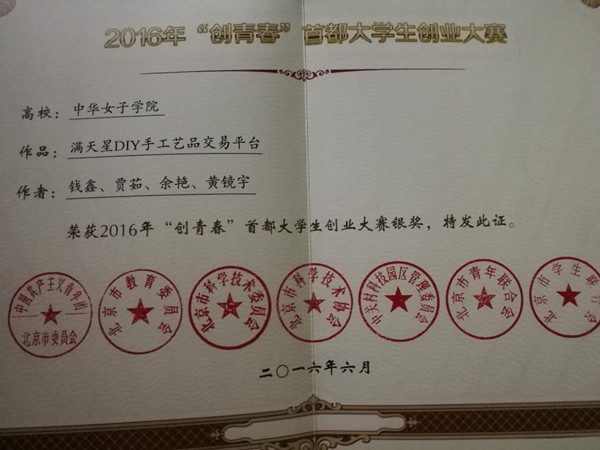 2016年“创青春”首都大学生创业大赛
高校：中华女子学院
作品：满天星DIY手工艺品交易平台
作者：钱鑫、贾茹、余艳、黄镜宇
荣获2016年“创青春”首都大学生创业大赛银奖，特发此证。
中国共产主义青年团北京市委员会
北京市教育委员会
北京市科学技术委员会
北京市科学技术协会
中关村科技园区管理委员会
北京市青年联合会
北京市学生联合会
二〇一六年六月